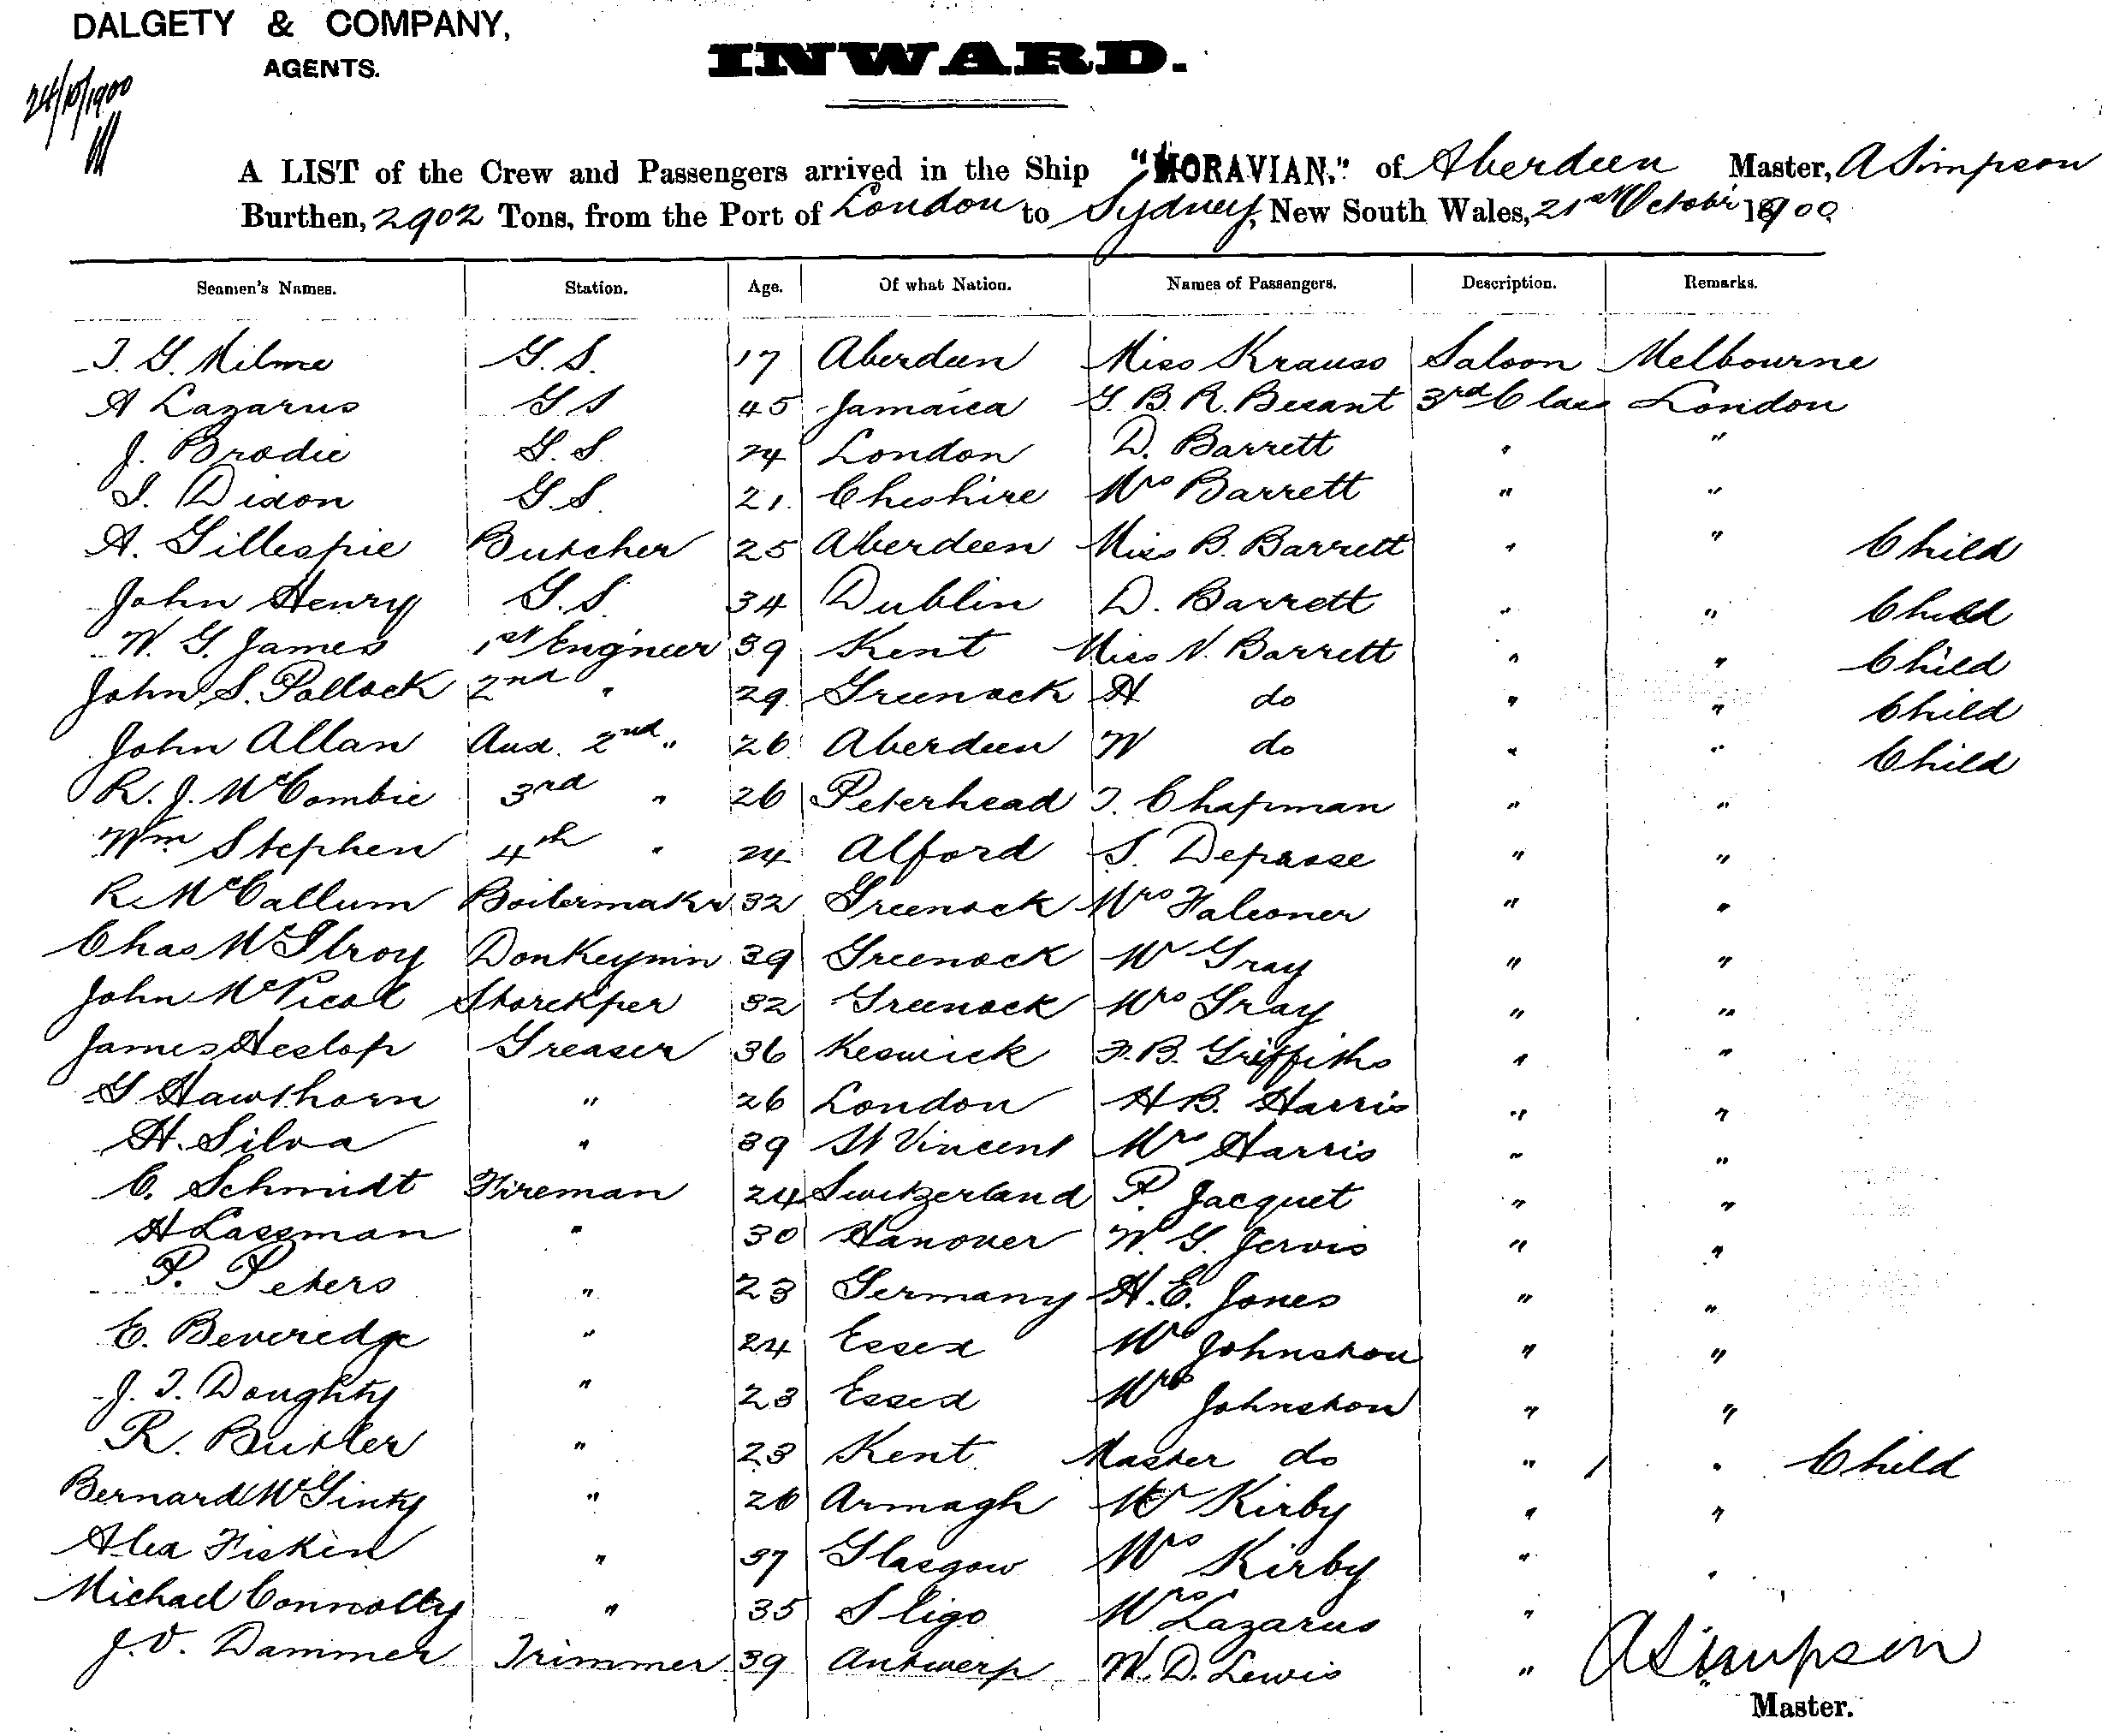 DALGETY & COMPANY,
AGENTS.
INWARD.
24/10/1900
A LIST of the Crew and Passengers arrived in the Ship "MORAVIAN," of Aberdeen Master, A Simpson
Burthen, 2902 Tons, from the Port of London to Sydney, New South Wales, 21st Octobr 1900
Seamen's Names. Station. Age. Of what Nation. Names of Passengers. Description. Remarks.
J. G. Milne G.S. 17 Aberdeen Miss Krauss Saloon Melbourne
A Lazarus G S 45 Jamaica G. B. R. Besant 3rd Class London
J. Brodie G.S. 24 London D. Barrett " "
I. Dixon G.S. 21 Cheshire Mrs Barrett " "
A. Gillespie Butcher 25 Aberdeen Miss B. Barrett " " Child
John Henry G.S. 34 Dublin D. Barrett " " Child
W. G. James 1st Engineer 39 Kent Miss N. Barrett " " Child
John S. Pollock 2nd " 29 Greenock H do " " Child
John Allan Aux. 2nd " 26 Aberdeen W do " " Child
R. J. McCombie 3rd " 26 Peterhead J. Chapman " "
Wm Stephen 4th " 24 Alford S. Depasse " "
R McCallum Boilermakr 32 Greenock Mrs Falconer " "
Chas McIlroy Donkeymn 39 Greenock Mr Gray " "
John McNicol Storekper 32 Greenock Mrs Gray " "
James Heslop Greaser 36 Keswick F. B. Griffiths " "
G Hawthorn " 26 London H B. Harris " "
H. Silva " 39 St Vincent Mrs Harris " "
C. Schmidt Fireman 24 Switzerland P. Jacquet " "
H Lassman " 30 Hanover W. G. Jervis " "
P. Peters " 23 Germany H. E. Jones " "
E. Beveredge " 24 Essex Mr Johnston " "
J. T. Doughty " 23 Essex Mrs Johnston " "
R. Butler " 23 Kent Master do " " Child
Bernard McGinty " 26 Armagh Mr Kirby " "
Alex Fiskin " 37 Glasgow Mrs Kirby " "
Michael Connolly " 35 Sligo Mrs Lazarus "
J. V. Dammer Trimmer 39 Antwerp W. D. Lewis "
A Simpson
Master.